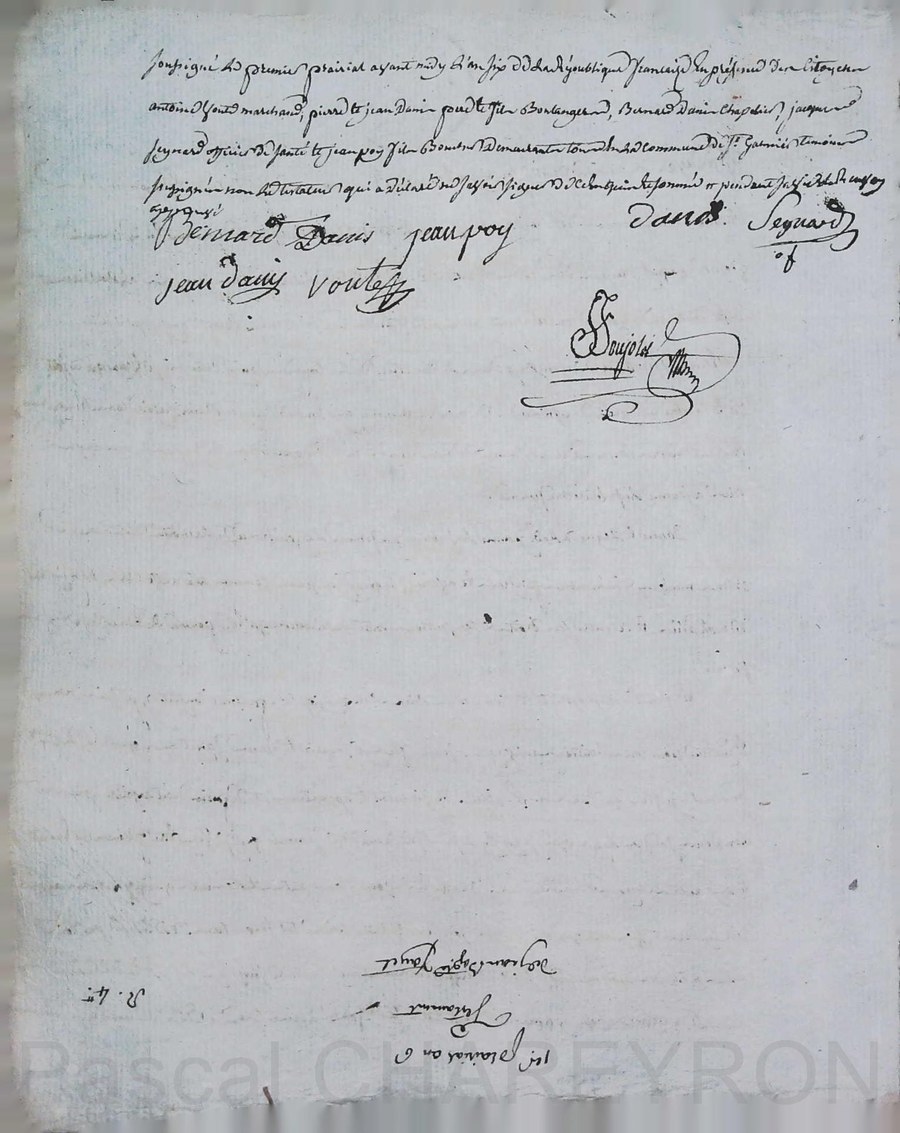 soussigné le premier prairial avant midy l'an six de la République française En présence des Citoyens
antoine Vouté marchand, pierre et jean Danis pere et fils Boulangers, Bernard Danis Chapelier, jacques
seynard officier de santé et jean poy fils Demeurants tous en la commune de St. Galmier temoins
soussignés non le testateur qui a déclaré ne savoir signer de ce enquis et sommé
Bernard Danis jean poy danis. Seynard
of
jean danis Voute
Poujolas
Nre
de jean Bapte
Testament
1er. prairial an 6
R. 4tt
Pascal CHAREYRON